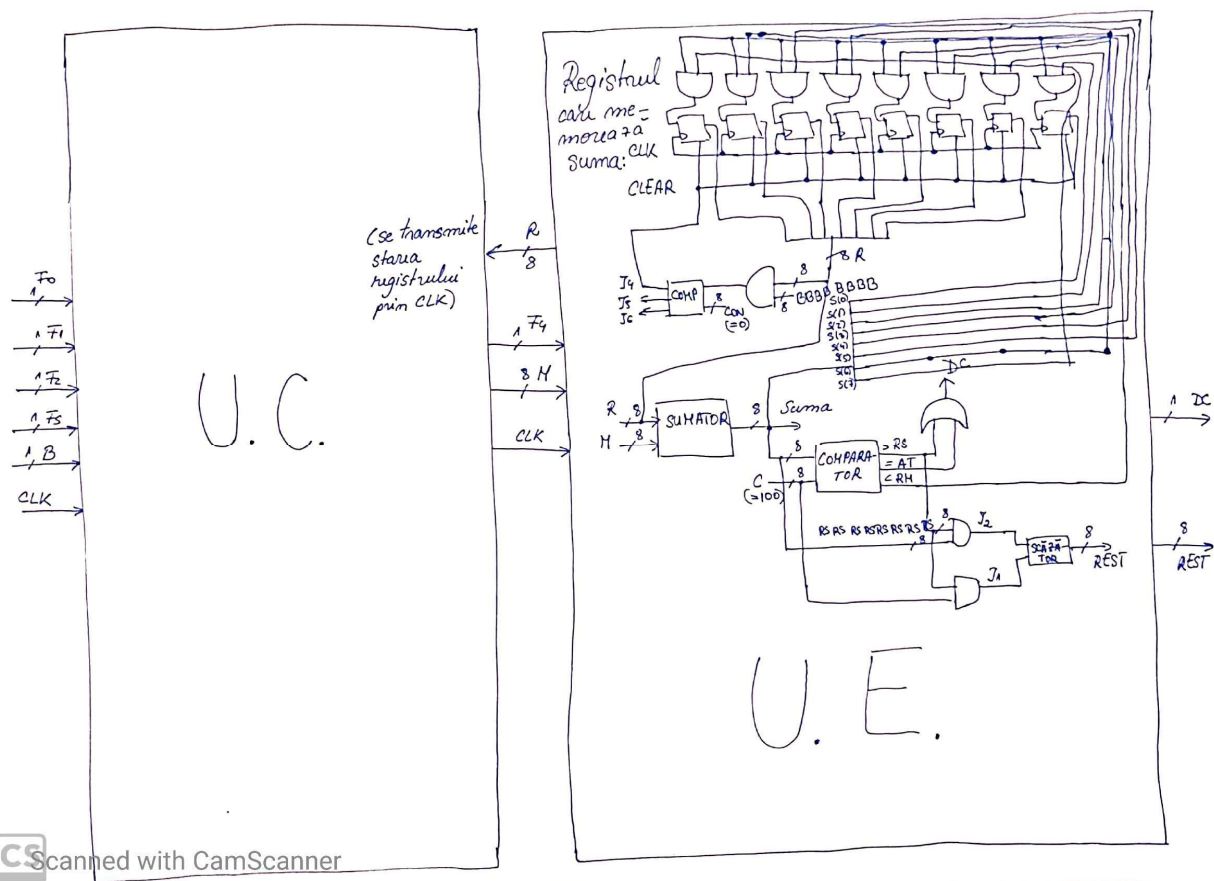 F0
1
1 F1
1 F2
1 F5
1 B
CLK
U.C.
(se transmite
starea
registrului
prin CLK)
R
8
1 F4
8 M
CLK
Registrul
care me-
moreaza
suma: CLK
CLEAR
8 R
8
8 BBBB BBBB
J4
J5
J6
COMP
8
CON
(=0)
S(0)
S(1)
S(2)
S(3)
S(4)
S(5)
S(6)
S(7)
DC
R 8
M 8
SUMATOR
8 Suma
8
C 8
(=100)
COMPARA-
TOR
> RS
= AT
< RM
RS RS RS RS RS RS RS RS 8
8
J2
J1
SCĂZĂ
TOR
8
REST
1 DC
8
REST
U.E.
CS Scanned with CamScanner